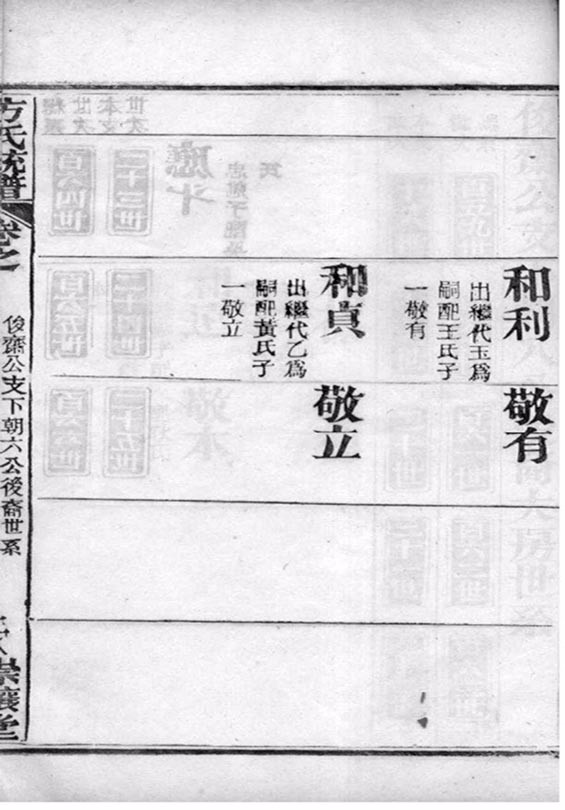 和利
出繼代玉爲
嗣配王氏子
一敬有
敬有
和貞
出繼代乙爲
嗣配黃氏子
一敬立
敬立
方氏統譜
卷之
俊齋公支下朝六公後裔世系
崇讓堂